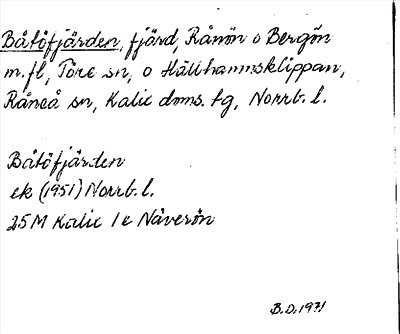 Båtöfjärden, fjärd, Rånön o Bergön
m.fl, Töre sn, o Hällhammsklippan,
Råneå sn, Kalix doms. tg, Norrb. l.
Båtöfjärden
ek (1951) Norrb. l.
25M Kalix 1 c Näverön
B.D. 1971